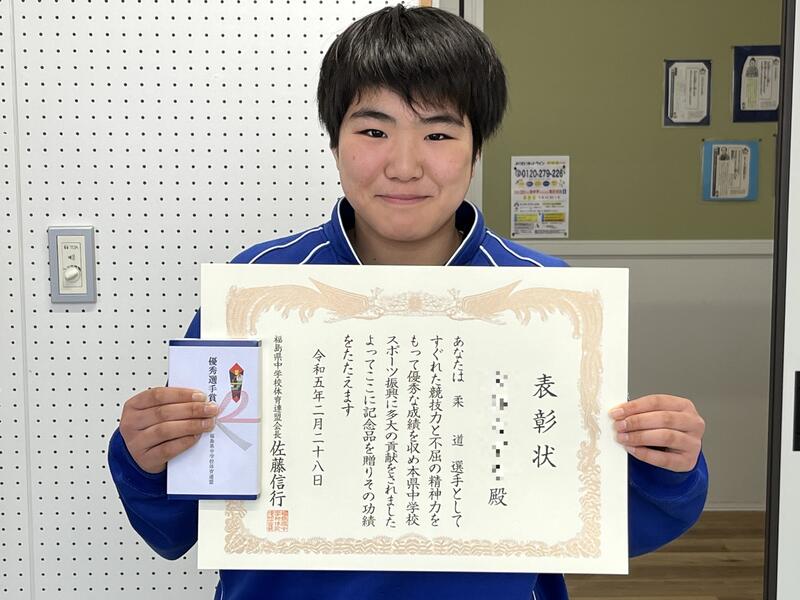 表彰状
殿
あなたは 柔道 選手として
すぐれた競技力と不屈の精神力を
もって優秀な成績を収め本県中学校
スポーツ振興に多大の貢献をされました
よってここに記念品を贈りその功績
をたたえます
令和五年二月二十八日
福島県中学校体育連盟会長 佐藤信行
優秀選手賞
福島県中学校体育連盟
0120-279-226
TOA